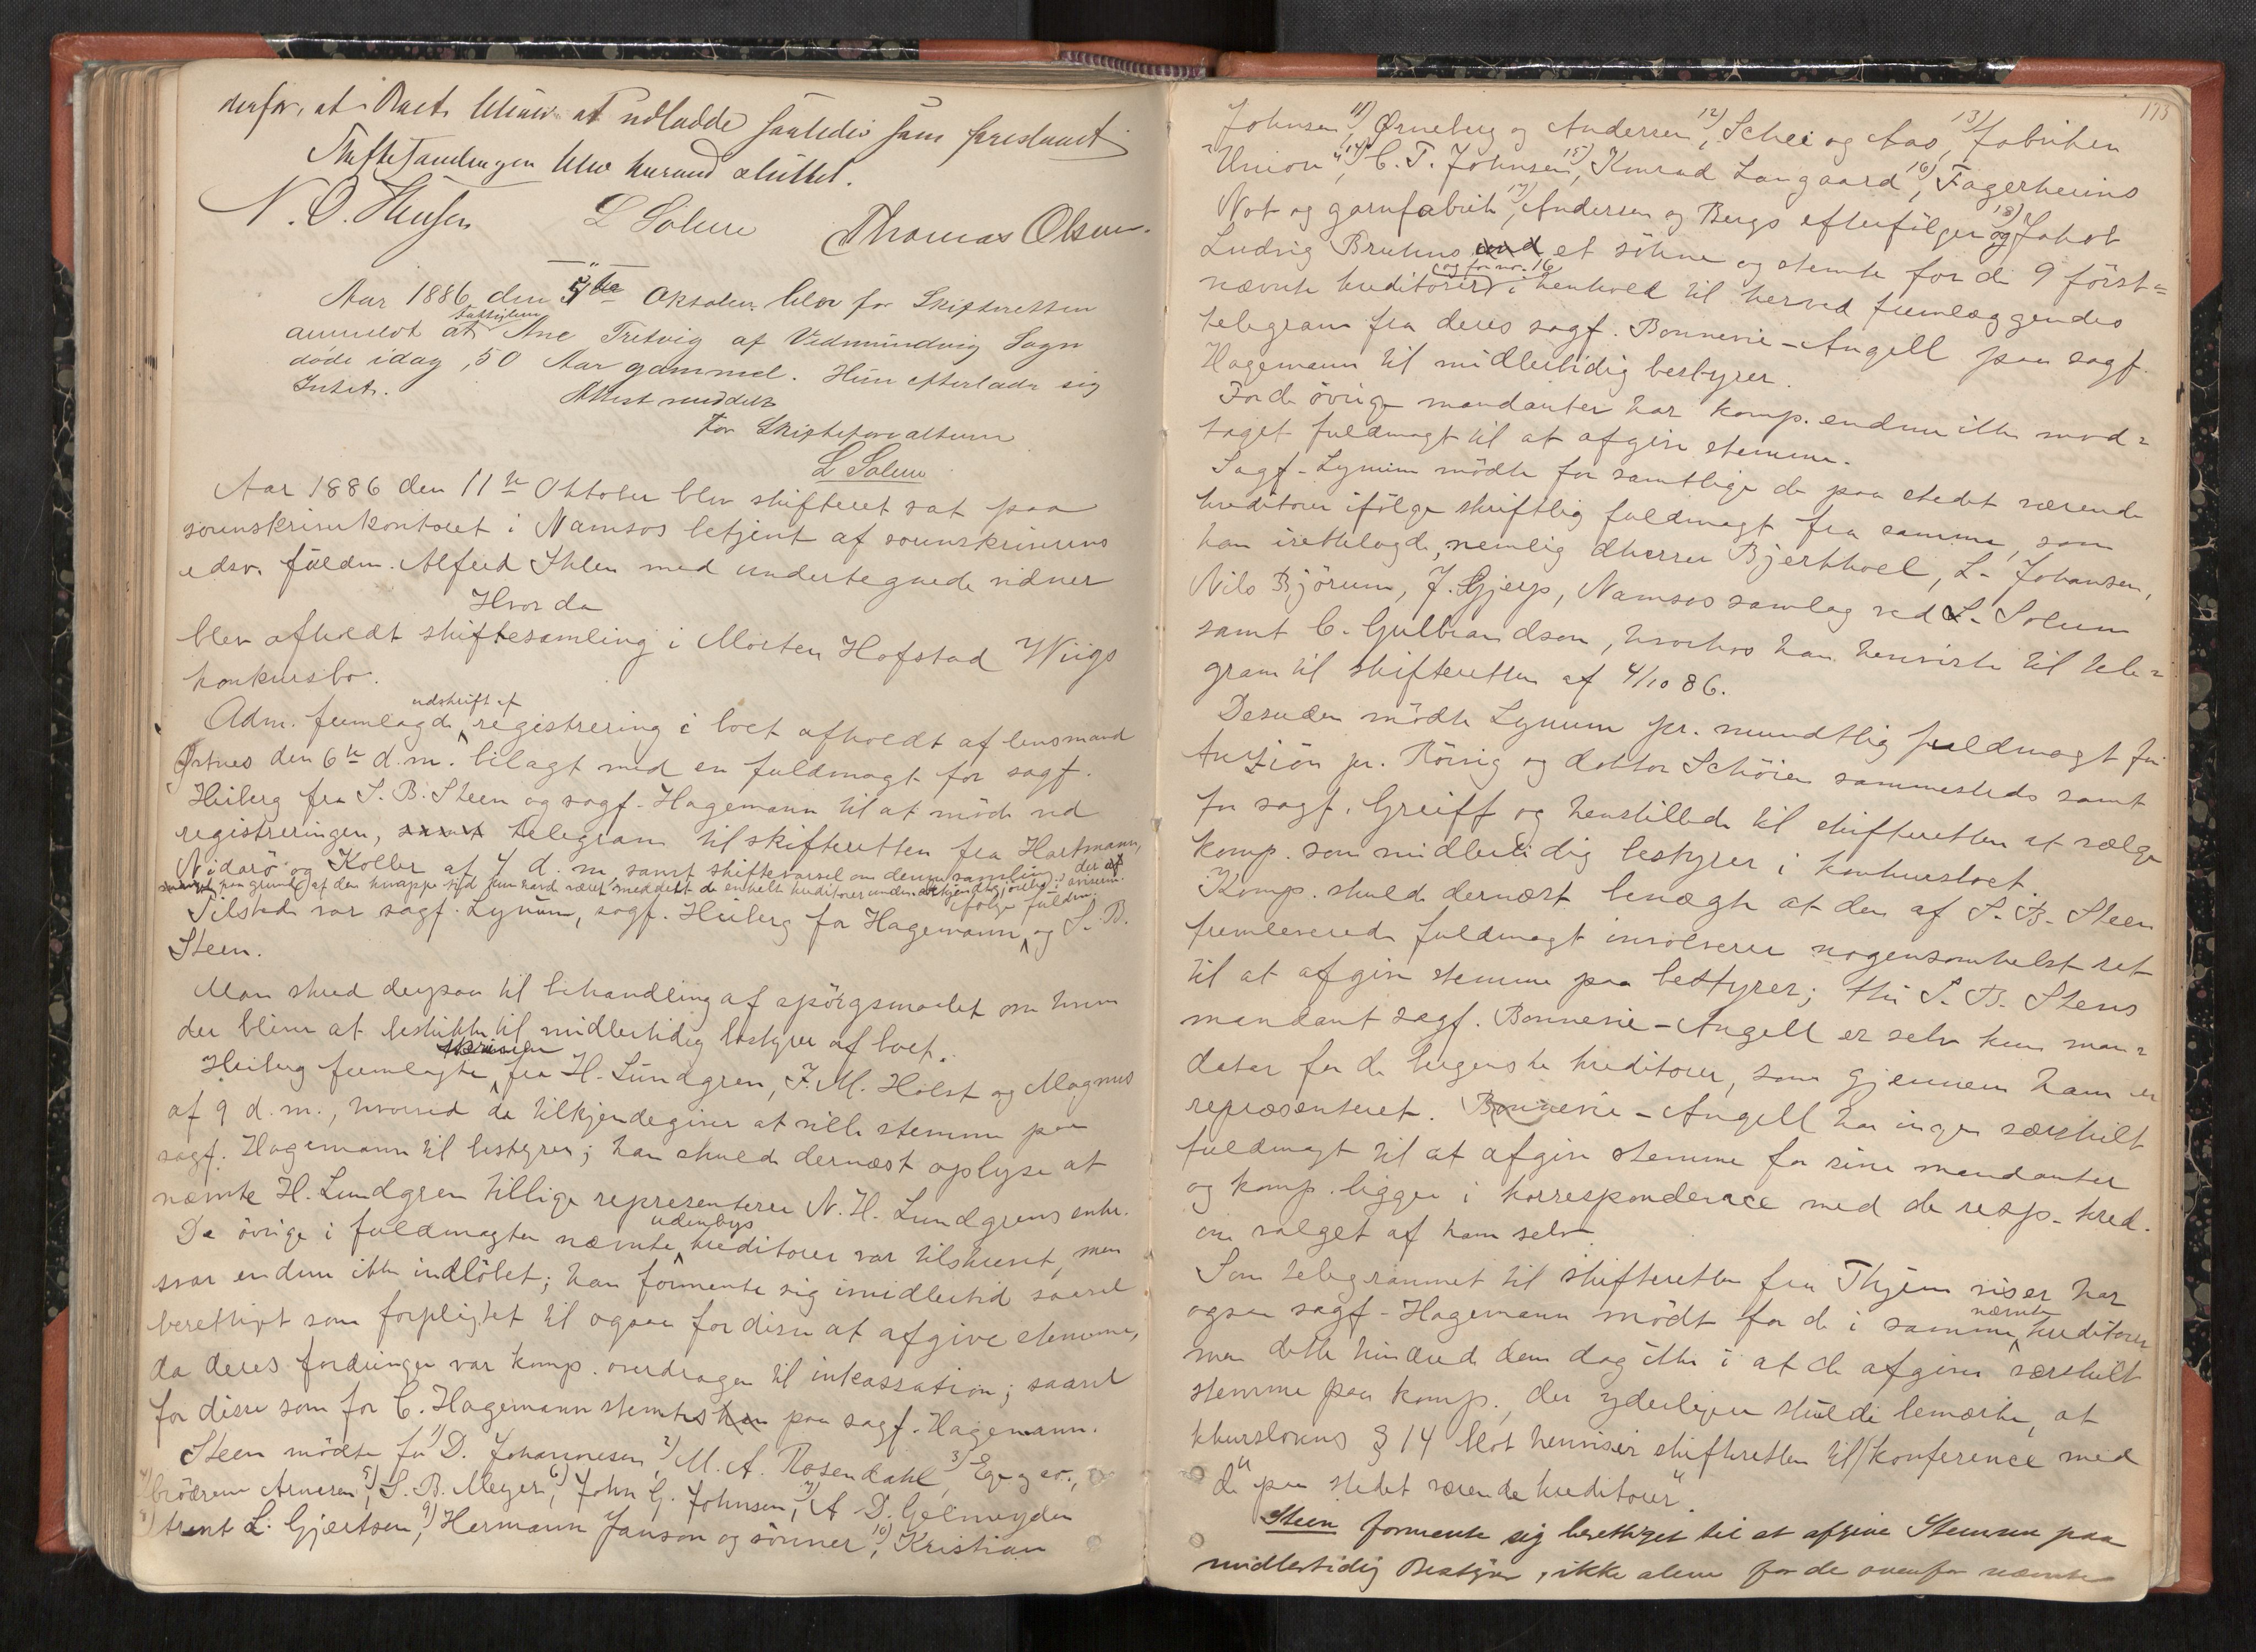 derfor, at Boet bliver at udlodde saaledes som foreslaaet
Skiftesamlingen blev herved sluttet.
L Solem Thomas Olsen.
Aar 1886 den 5te Oktober blev for Skifteretten
anmeldt at fattiglem Ane Tretvig af Vedmundvig Sogn
døde idag, 50 Aar gammel. Hun efterlader sig
Intet.
Attest meddelt
For Skifteforvalteren
L Solem
Aar 1886 den 11te Oktober blev skifteret sat paa
sorenskriverkontoret i Namsos betjent af sorenskriverens
edsv. fuldm. Alfred Ihlen med undertegnede vidner
Hvor da
blev afholdt skiftesamling i Morten Hofstad Wiigs
konkursbo.
Adm. fremlagde udskrift af registrering i boet afholdt af lensmand
Ørtnes den 6te d.m. bilagt med en fuldmagt for sagf.
Heiberg fra S. B. Steen og sagf. Hagemann til at møde ved
registreringen, samt telegram til skifteretten fra Hartmann,
Nidarø og Koller af 7 d. m. samt skiftevarsel om denne samling, der af
paa grund af den knappe tid kun havde været meddelt de enkelte kreditorer uden bekjendtgjørelse i aviserne.
Tilstede var sagf. Lynum, sagf. Heiberg for Hagemann ifølge fuldm. og S. B.
Steen.
Man skred derpaa til behandling af spörgsmaalet om hvem
der bliver at beskikke til midlertidig bestyrer af boet.
Heiberg fremlagte skrivelse fra H. Lundgren, F. M. Holst og Magnus
af 9 d. m., hvorved de tilkjendegiver at ville stemme paa
sagf. Hagemann til bestyrer; han skulde dernæst oplyse at
nævnte H. Lundgren tillige representerer N. H. Lundgrens enke.
De övrige i fuldmagten nævnte udenbys kreditorer var tilskrevet, men
svar endnu ikke indlöbet; han formente sig imidlertid saavel
berettiget som forpligtet til ogsaa for disse at afgive stemme,
da deres fordringer var komp. overdragen til inkassation; saavel
for disse som for C. Hagemann stemtes han paa sagf. Hagemann.
Steen mödte for 1) D. Johannesen, 2) M. A. Rosendahl, 3) Ege og co.,
4) brödrene Arnesen, 5) S. B. Meyer, 6) John G. Johnsen, 7) A. D. Gelmeyden
8) Arent L. Gjertsen, 9) Hermann Janson og sönner, 10) Kristian
173
Johnsen, 11) Ørneberg og Andersen, 12) Schei og Aas, 13) fabriken
"Union", 14) C. T. Johnsen, 15) Konrad Langaard, 16) Fagerheims
Not og garnfabrik, 17) Andersen og Bergs efterfölger og 18) Jakob
Ludvig Bruhns et söhne og stemte for de 9 först=
nævnte kreditorer og for no. 16 i henhold til herved fremlæggendes
telegram fra deres sagf. Bonnevie-Angell paa sagf.
Hagemann til midlertidig bestyrer.
For de övrige mandanter har komp. endnu ikke mod=
taget fuldmagt til at afgive stemme.
Sagf. Lynum mödte for samtlige de paa stedet værende
kreditorer ifölge skriftlig fuldmagt fra samme, som
han iretlelagde, nemlig dherrer Bjerkhoel, L. Johansen,
Nils Björum, J. Gjerp, Namsos samlag ved L. Solem
samt C. Gulbrandson, hvorhos han henviste til tele=
gram til skifteretten af 4/10 86.
Desuden mödte Lynum pr. mundtlig fuldmagt for
pr. Rörvig og doktor Schöien sammesteds samt
for sagf. Greiff og henstillede til skifteretten at vælge
komp. som midlertidig bestyrer i konkursboet.
Komp. skulde dernæst benægte at den af S. B. Steen
fremleverede fuldmagt involverer nogensomhelst ret
til at afgive stemme paa bestyrer; thi S. B. Steens
mandant sagf. Bonnevie-Angell er selv kun man=
datar for de bergenske kreditorer, som gjennem ham er
repræsenteret. Bonnevie-Angell har ingen særskilt
fuldmagt til at afgive stemme for sine mandanter
og komp. ligger i korrespondence med de resp. kred.
om valget af ham selv.
Som telegrammet til skifteretten fra Thjem viser har
ogsaa sagf. Hagemann mödt for de i samme nævnte kreditorer
men dette hindrede dem dog ikke i at de afgive særskilt
stemme paa komp., der yderligere skulde bemærke, at
kkurslovens § 14 blot henviser skifteretten til konference med
de "paa stedet værende kreditorer".
Steen formente sig berettiget til at afgive Stemme paa
midlertidig Bestyrer, ikke alene for de ovenfor nævnte